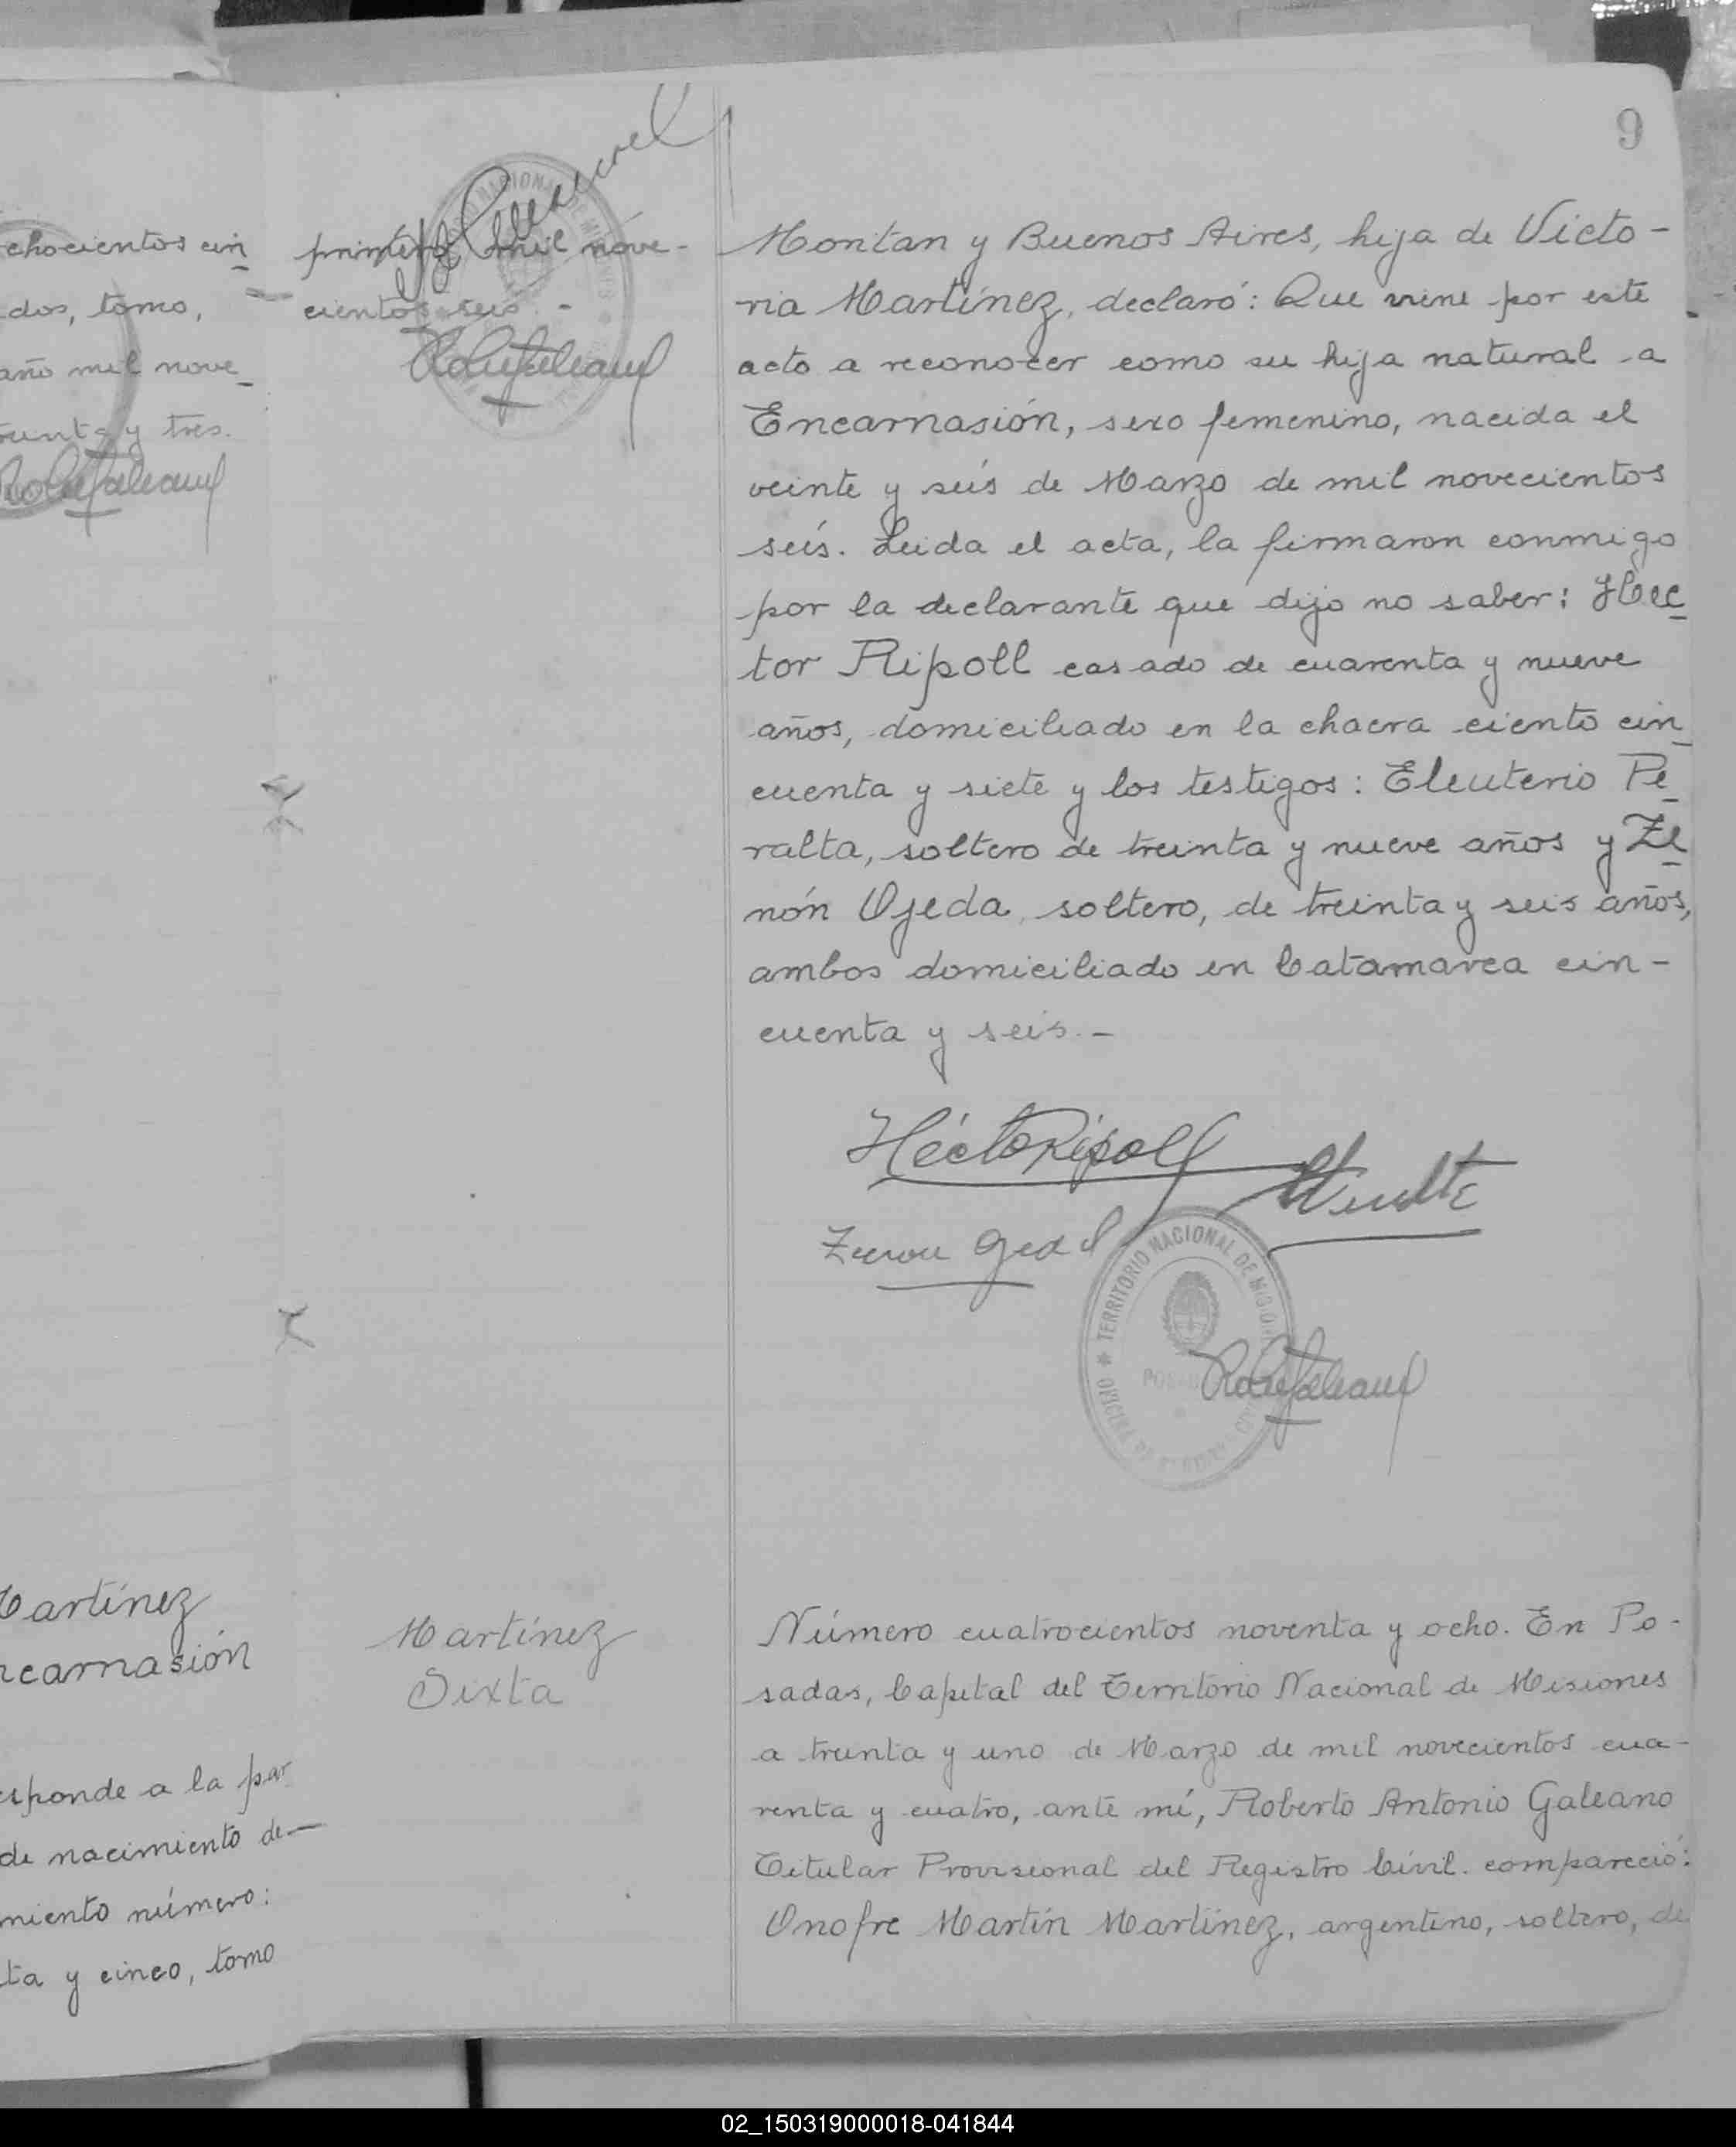 9
chocientos cin
dos, tomo,
año mil nove
y tres.
primero, mil nove-
cientos seis. -
Montan y Buenos Aires, hija de Victo-
ria Martínez, declaró: Que viene por este
acto a reconocer como su hija natural a
Encarnasión, sexo femenino, nacida el
veinte y seis de Marzo de mil novecientos
seis. Leida el acta, la firmaron conmigo
por la declarante que dijo no saber: Hec
tor Ripoll casado de cuarenta y nueve
años, domiciliado en la chacra ciento cin
cuenta y siete y los testigos: Eleuterio Pe
ralta, soltero de treinta y nueve años y Ze
nón Ojeda, soltero, de treinta y seis años,
ambos domiciliado en Catamarca cin-
cuenta y seis. -
Héctor Ripoll
TERRITORIO NACIONAL DE MISIONES
artínez
ncarnasión
sponde a la par
de nacimiento de-
miento número:
ta y cinco, tomo
Martínez
Sixta
Número cuatrocientos noventa y ocho. En Po-
sadas, Capital del Territorio Nacional de Misiones
a treinta y uno de Marzo de mil novecientos cua-
renta y cuatro, ante mí, Roberto Antonio Galeano
Titular Provisional del Registro Civil. compareció:
Onofre Martín Martínez, argentino, soltero, de
02_150319000018-041844